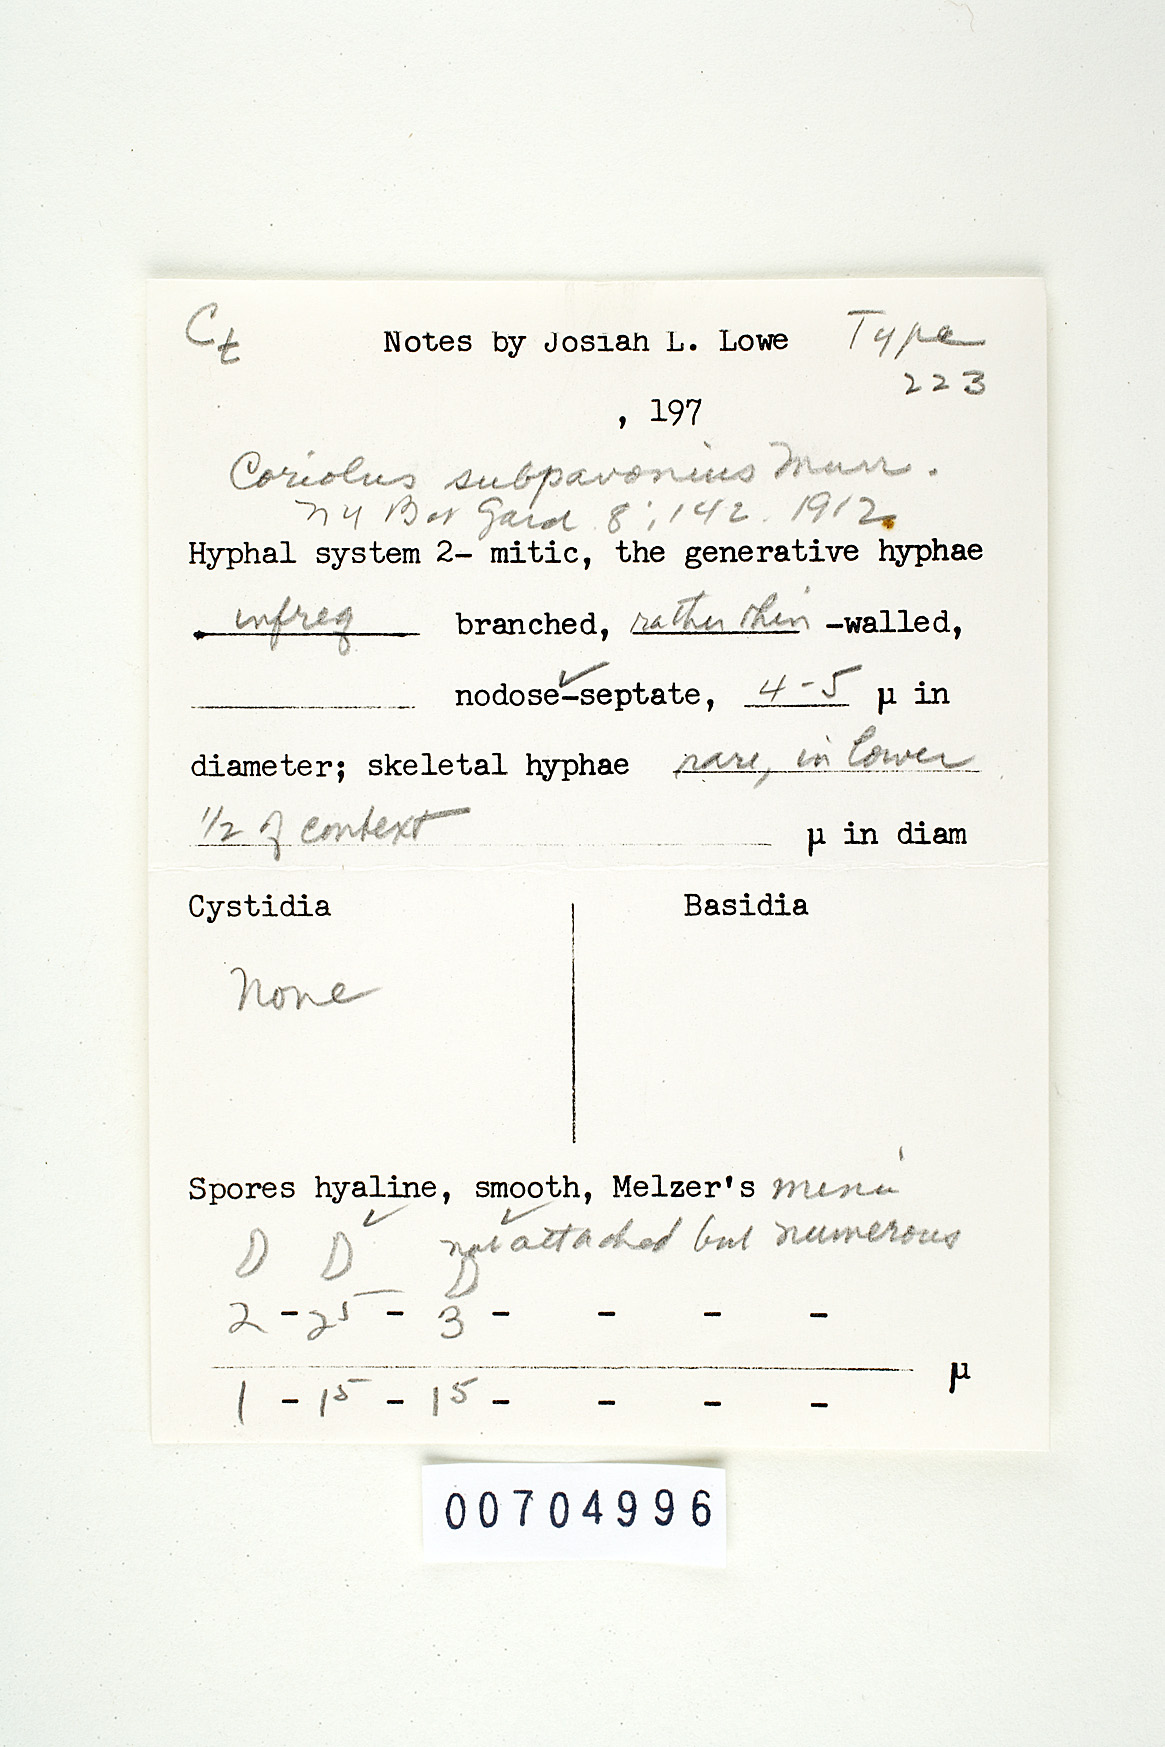 Ct Notes by Josiah L. Lowe Type
223
, 197
Coriolus subpavonius Murr.
NY Bot Gard 8:142. 1912.
Hyphal system 2- mitic, the generative hyphae
infreq branched, rather thin -walled,
nodose-septate, 4-5 µ in
diameter; skeletal hyphae rare, in lower
1/2 of context µ in diam
Cystidia Basidia
None
Spores hyaline, smooth, Melzer's minu
✓ ✓
D D not attached but numerous
D
2 - 25 - 3 - - - -
µ
1 - 15 - 15 - - - -
00704996